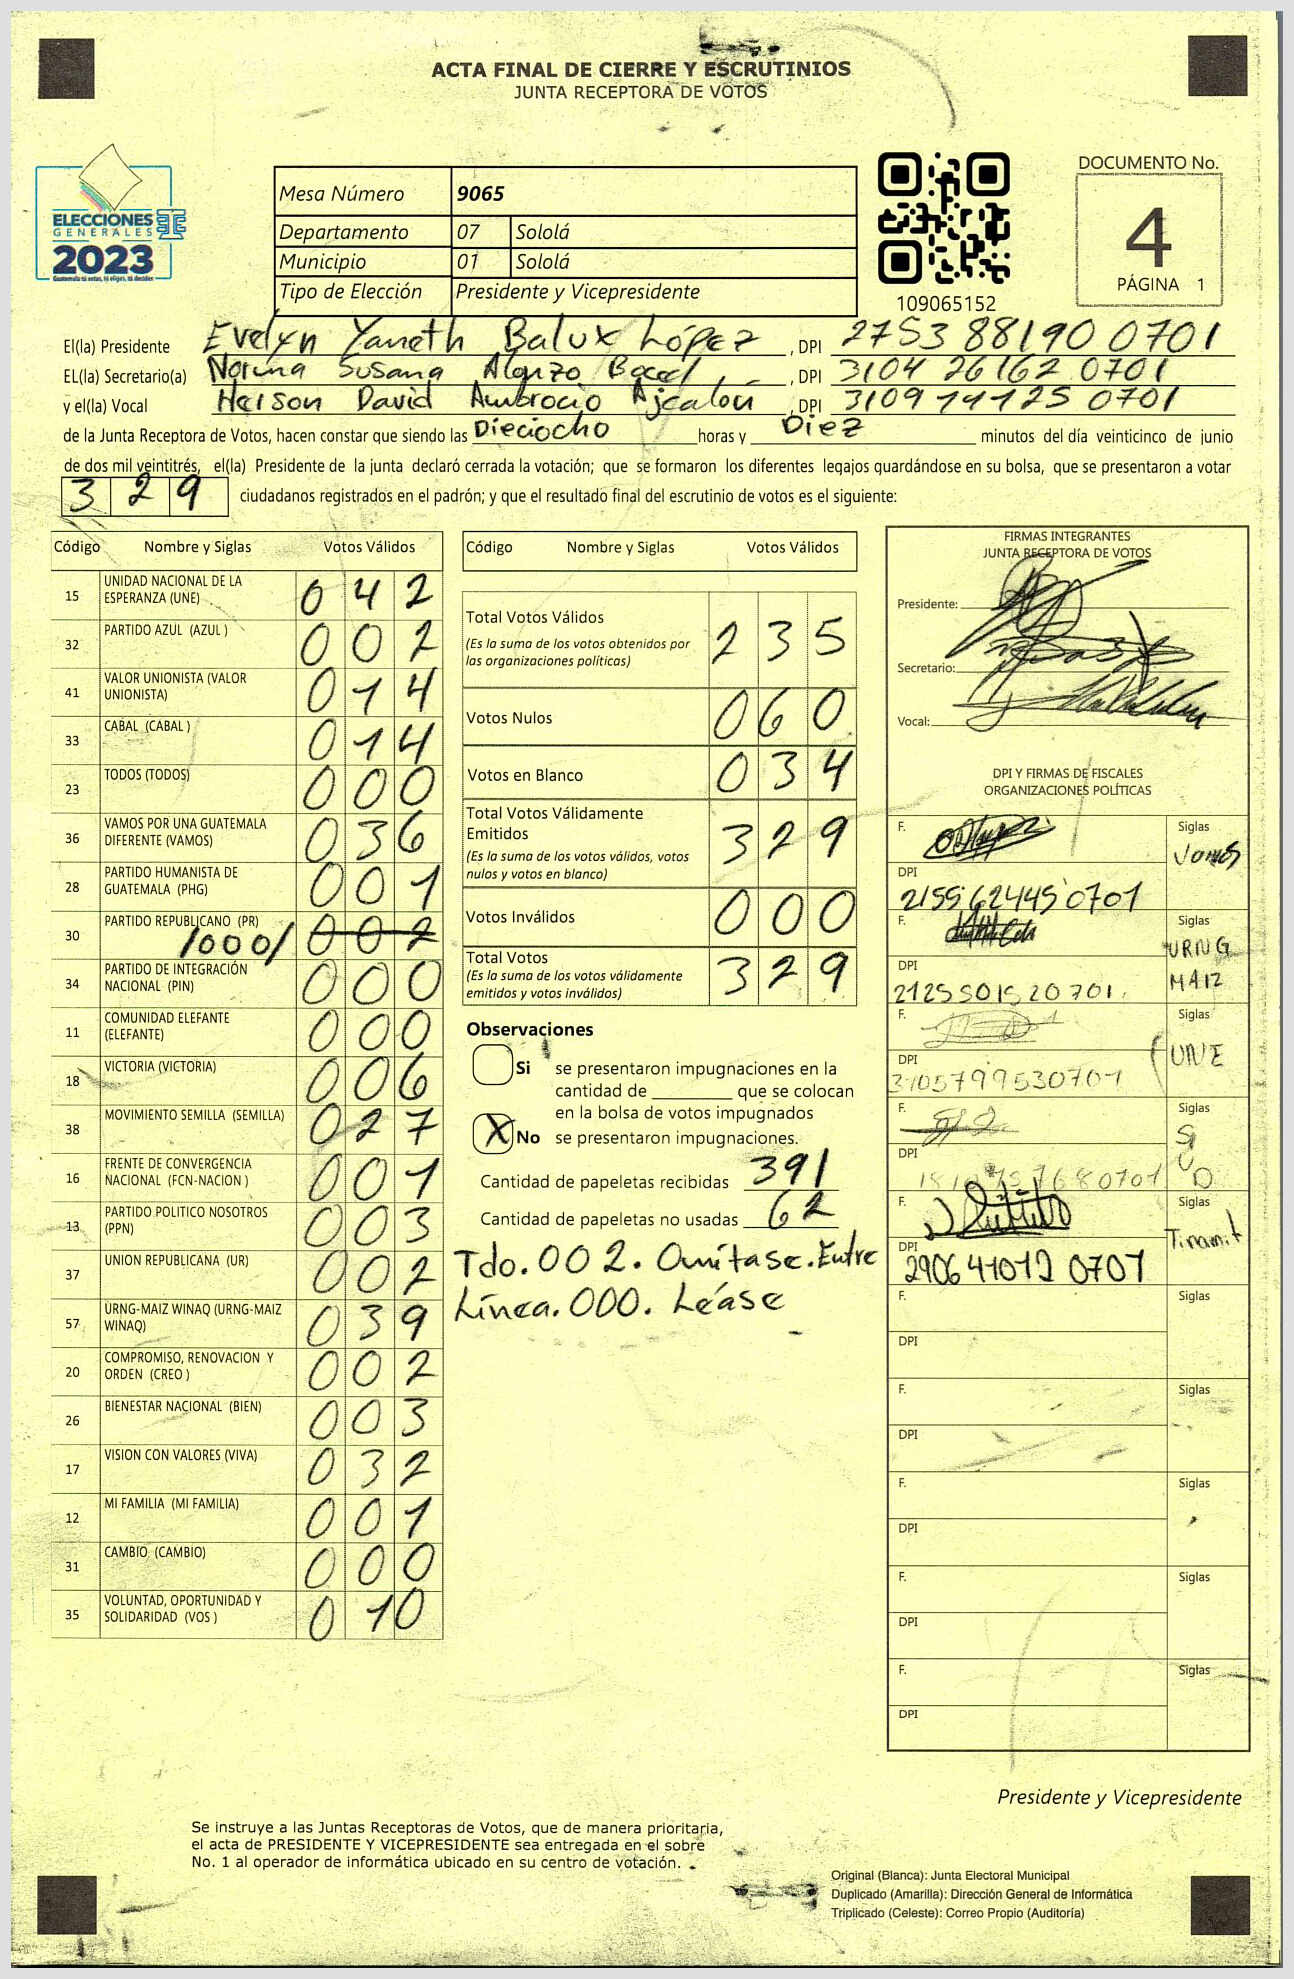 ACTA FINAL DE CIERRE Y ESCRUTINIOS
JUNTA RECEPTORA DE VOTOS
ELECCIONES
GENERALES
2023
Guatemala tú votas, tú eliges, tú decides
Mesa Número 9065
Departamento 07 Sololá
Municipio 01 Sololá
Tipo de Elección Presidente y Vicepresidente
109065152
DOCUMENTO No.
4
PÁGINA 1
El(la) Presidente Evelyn Yaneth Balux López , DPI 2753 88190 0701
EL(la) Secretario(a) Norma Susana Alonzo Bocel , DPI 3104 26162 0701
y el(la) Vocal Herson David Ambrocio Ajcalón , DPI 3109 14125 0701
de la Junta Receptora de Votos, hacen constar que siendo las Dieciocho horas y Diez minutos del día veinticinco de junio
de dos mil veintitrés, el(la) Presidente de la junta declaró cerrada la votación; que se formaron los diferentes legajos guardándose en su bolsa, que se presentaron a votar
329 ciudadanos registrados en el padrón; y que el resultado final del escrutinio de votos es el siguiente:
Código Nombre y Siglas Votos Válidos
15 UNIDAD NACIONAL DE LA ESPERANZA (UNE) 042
32 PARTIDO AZUL (AZUL ) 002
41 VALOR UNIONISTA (VALOR UNIONISTA) 014
33 CABAL (CABAL ) 014
23 TODOS (TODOS) 000
36 VAMOS POR UNA GUATEMALA DIFERENTE (VAMOS) 036
28 PARTIDO HUMANISTA DE GUATEMALA (PHG) 001
30 PARTIDO REPUBLICANO (PR) /000/ 002
34 PARTIDO DE INTEGRACIÓN NACIONAL (PIN) 000
11 COMUNIDAD ELEFANTE (ELEFANTE) 000
18 VICTORIA (VICTORIA) 006
38 MOVIMIENTO SEMILLA (SEMILLA) 027
16 FRENTE DE CONVERGENCIA NACIONAL (FCN-NACION ) 001
13 PARTIDO POLITICO NOSOTROS (PPN) 003
37 UNION REPUBLICANA (UR) 002
57 URNG-MAIZ WINAQ (URNG-MAIZ WINAQ) 039
20 COMPROMISO, RENOVACION Y ORDEN (CREO ) 002
26 BIENESTAR NACIONAL (BIEN) 003
17 VISION CON VALORES (VIVA) 032
12 MI FAMILIA (MI FAMILIA) 001
31 CAMBIO (CAMBIO) 000
35 VOLUNTAD, OPORTUNIDAD Y SOLIDARIDAD (VOS ) 010
Código Nombre y Siglas Votos Válidos
Total Votos Válidos 235
(Es la suma de los votos obtenidos por
las organizaciones políticas)
Votos Nulos 060
Votos en Blanco 034
Total Votos Válidamente
Emitidos 329
(Es la suma de los votos válidos, votos
nulos y votos en blanco)
Votos Inválidos 000
Total Votos 329
(Es la suma de los votos válidamente
emitidos y votos inválidos)
Observaciones
Si se presentaron impugnaciones en la
cantidad de ________ que se colocan
en la bolsa de votos impugnados
X No se presentaron impugnaciones.
Cantidad de papeletas recibidas 391
Cantidad de papeletas no usadas 62
Tdo.002. Omitase. Entre
Línea.000. Léase
FIRMAS INTEGRANTES
JUNTA RECEPTORA DE VOTOS
Presidente:
Secretario:
Vocal:
DPI Y FIRMAS DE FISCALES
ORGANIZACIONES POLÍTICAS
F. Siglas
Vamos
DPI
2155 62445 0701
F. Siglas
URNG
MAIZ
DPI
2125 50152 0701
F. Siglas
UNE
DPI
3105799530701
F. Siglas
DPI
F. Siglas
Tinamit
DPI
2906 41012 0701
F. Siglas
DPI
F. Siglas
DPI
F. Siglas
DPI
F. Siglas
DPI
F. Siglas
DPI
Presidente y Vicepresidente
Se instruye a las Juntas Receptoras de Votos, que de manera prioritaria,
el acta de PRESIDENTE Y VICEPRESIDENTE sea entregada en el sobre
No. 1 al operador de informática ubicado en su centro de votación.
Original (Blanca): Junta Electoral Municipal
Duplicado (Amarilla): Dirección General de Informática
Triplicado (Celeste): Correo Propio (Auditoría)